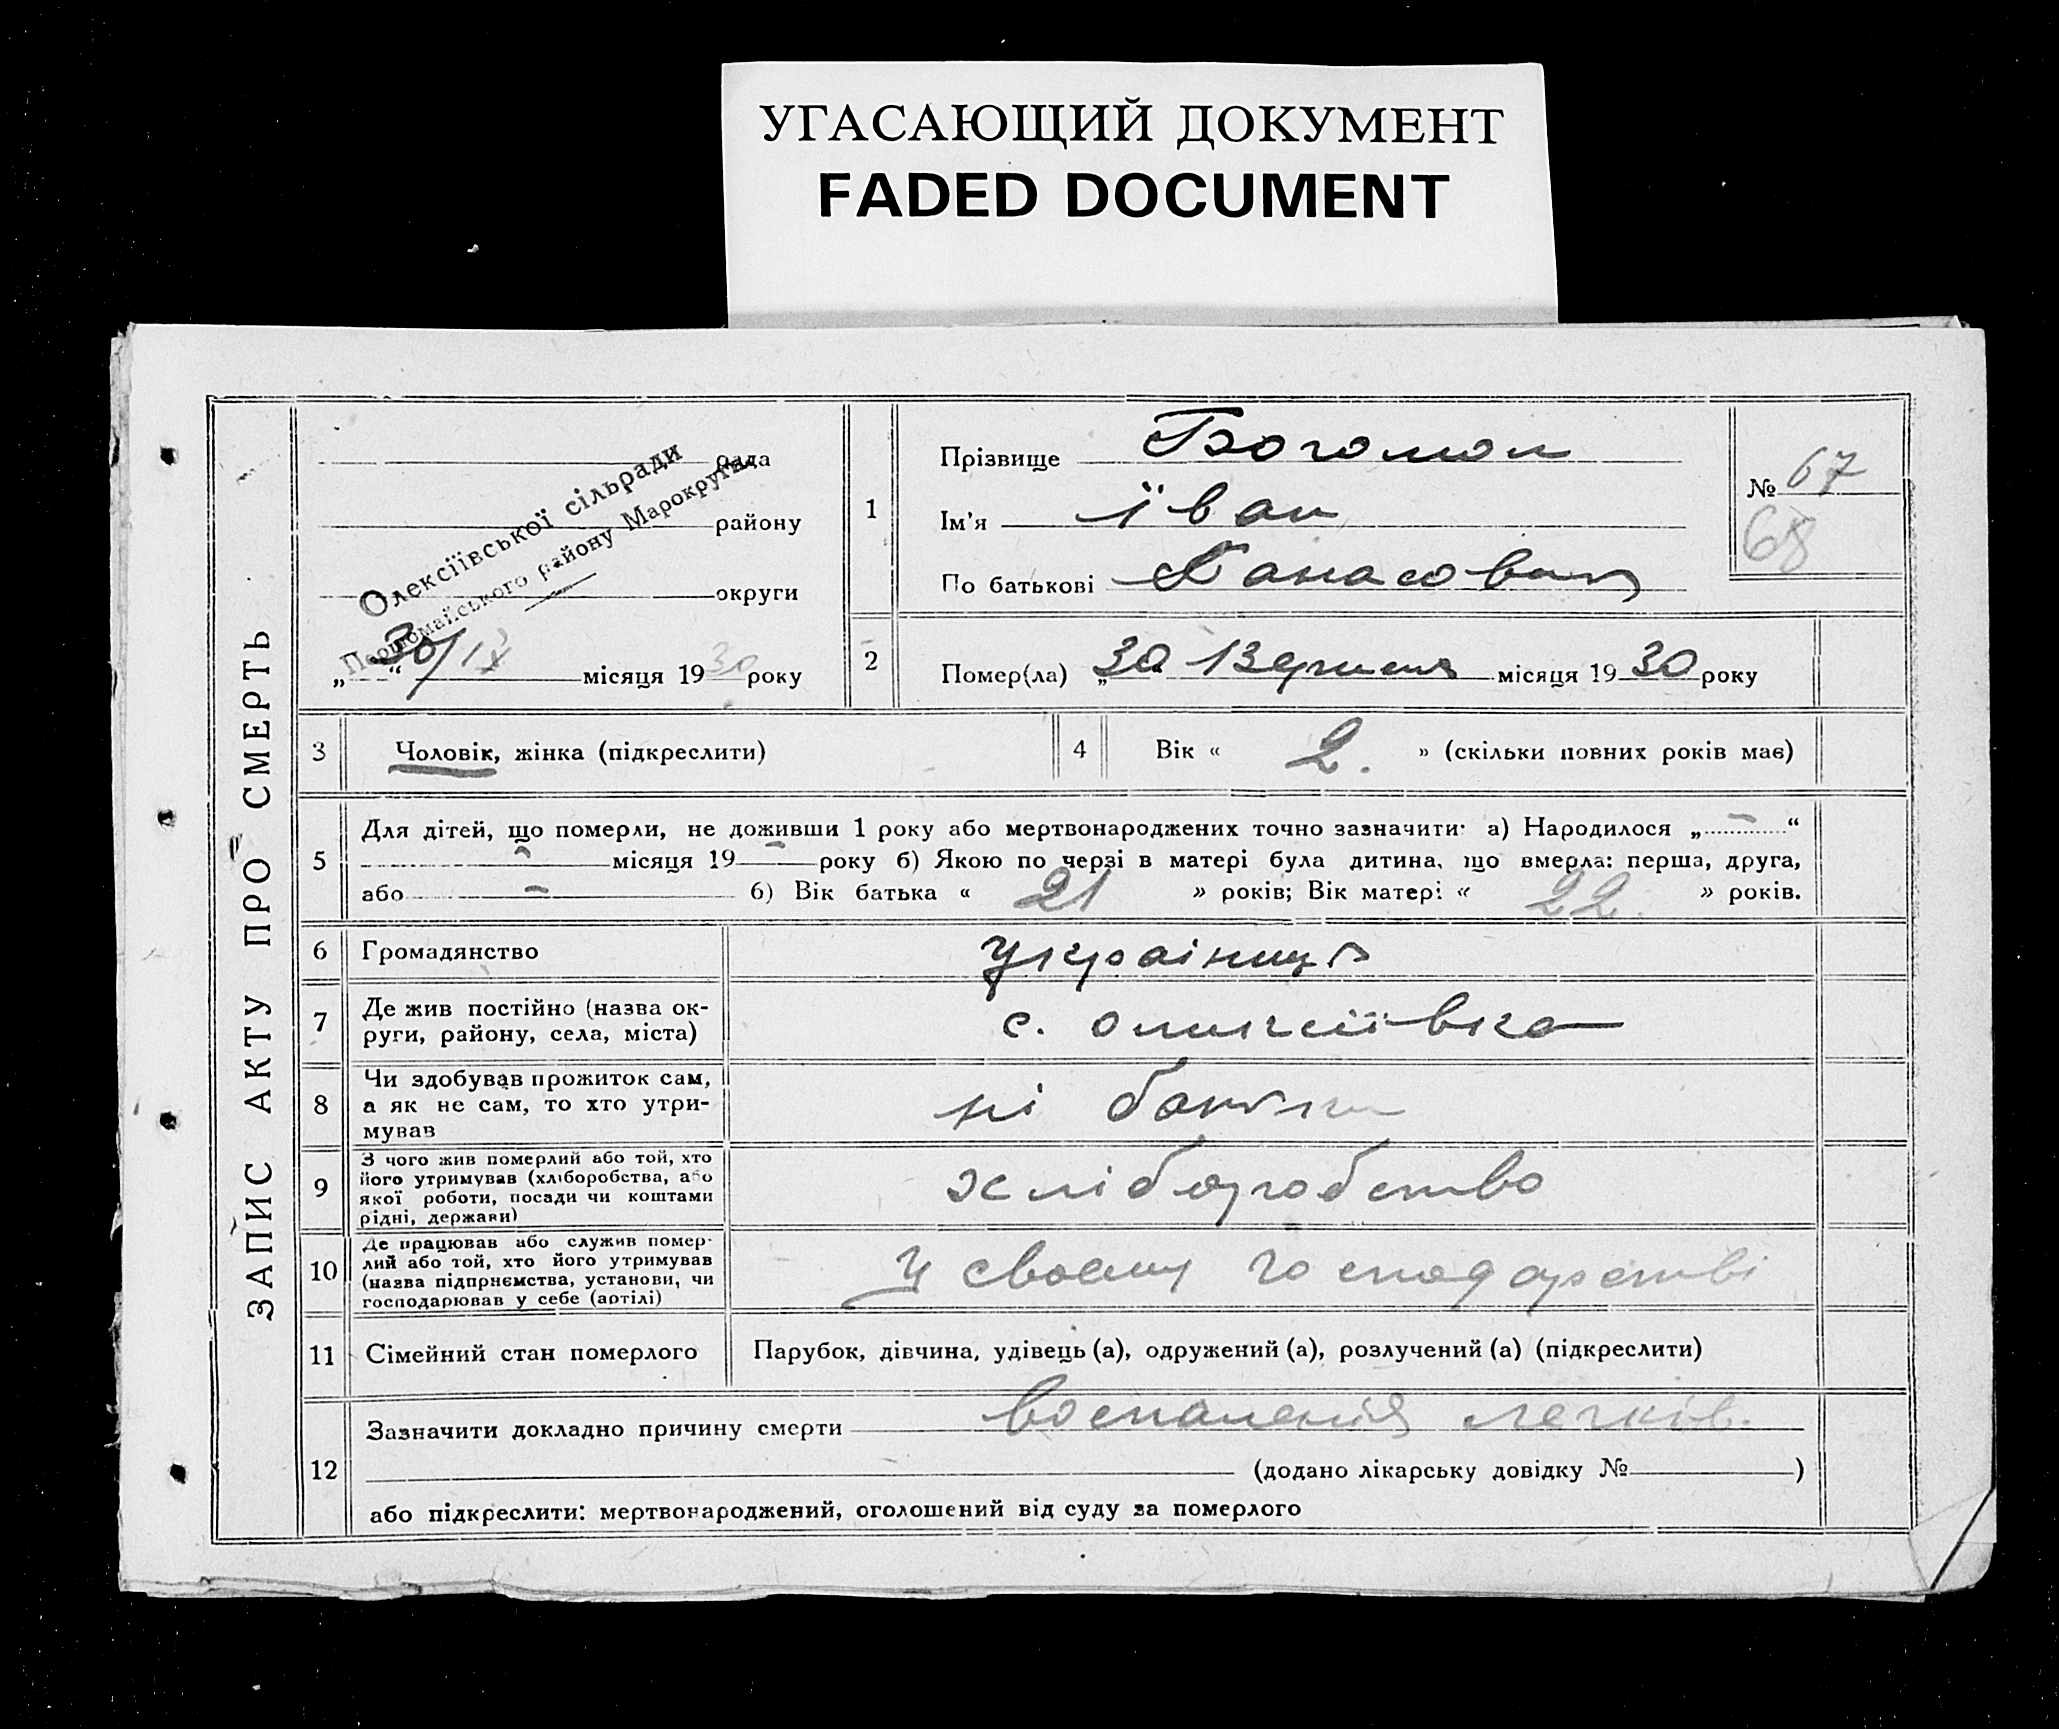 УГАСАЮЩИЙ ДОКУМЕНТ
FADED DOCUMENT
ЗАПИС АКТУ ПРО СМЕРТЬ
рада
району
округи
Олексіївської сільради
Першомайського району Марокруги
„30/IX“ місяця 1930 року
1
Прізвище Богомол
Ім'я Іван
По батькові Панасович
№ 67
68
2
Помер(ла) „30 Вересня місяця 1930 року
3 Чоловік, жінка (підкреслити)
4 Вік « 2. » (скільки повних років має)
5
Для дітей, що померли, не доживши 1 року або мертвонароджених точно зазначити: а) Народилося „ – “
– місяця 19 – року б) Якою по черзі в матері була дитина, що вмерла: перша, друга,
або – б) Вік батька « 21 » років; Вік матері « 22. » років.
6 Громадянство
7
Де жив постійно (назва ок-
руги, району, села, міста)
с.
8
Чи здобував прожиток сам,
а як не сам, то хто утри-
мував
ні батьки
9
З чого жив померлий або той, хто
його утримував (хліборобства, або
якої роботи, посади чи коштами
рідні, держави)
хліборобство
10
Де працював або служив помер-
лий або той, хто його утримував
(назва підприємства, установи, чи
господарював у себе (артілі)
У своєму господарстві
11 Сімейний стан померлого
Парубок, дівчина, удівець (а), одружений (а), розлучений (а) (підкреслити)
12
Зазначити докладно причину смерти воспаления легків.
(додано лікарську довідку № )
або підкреслити: мертвонароджений, оголошений від суду за померлого